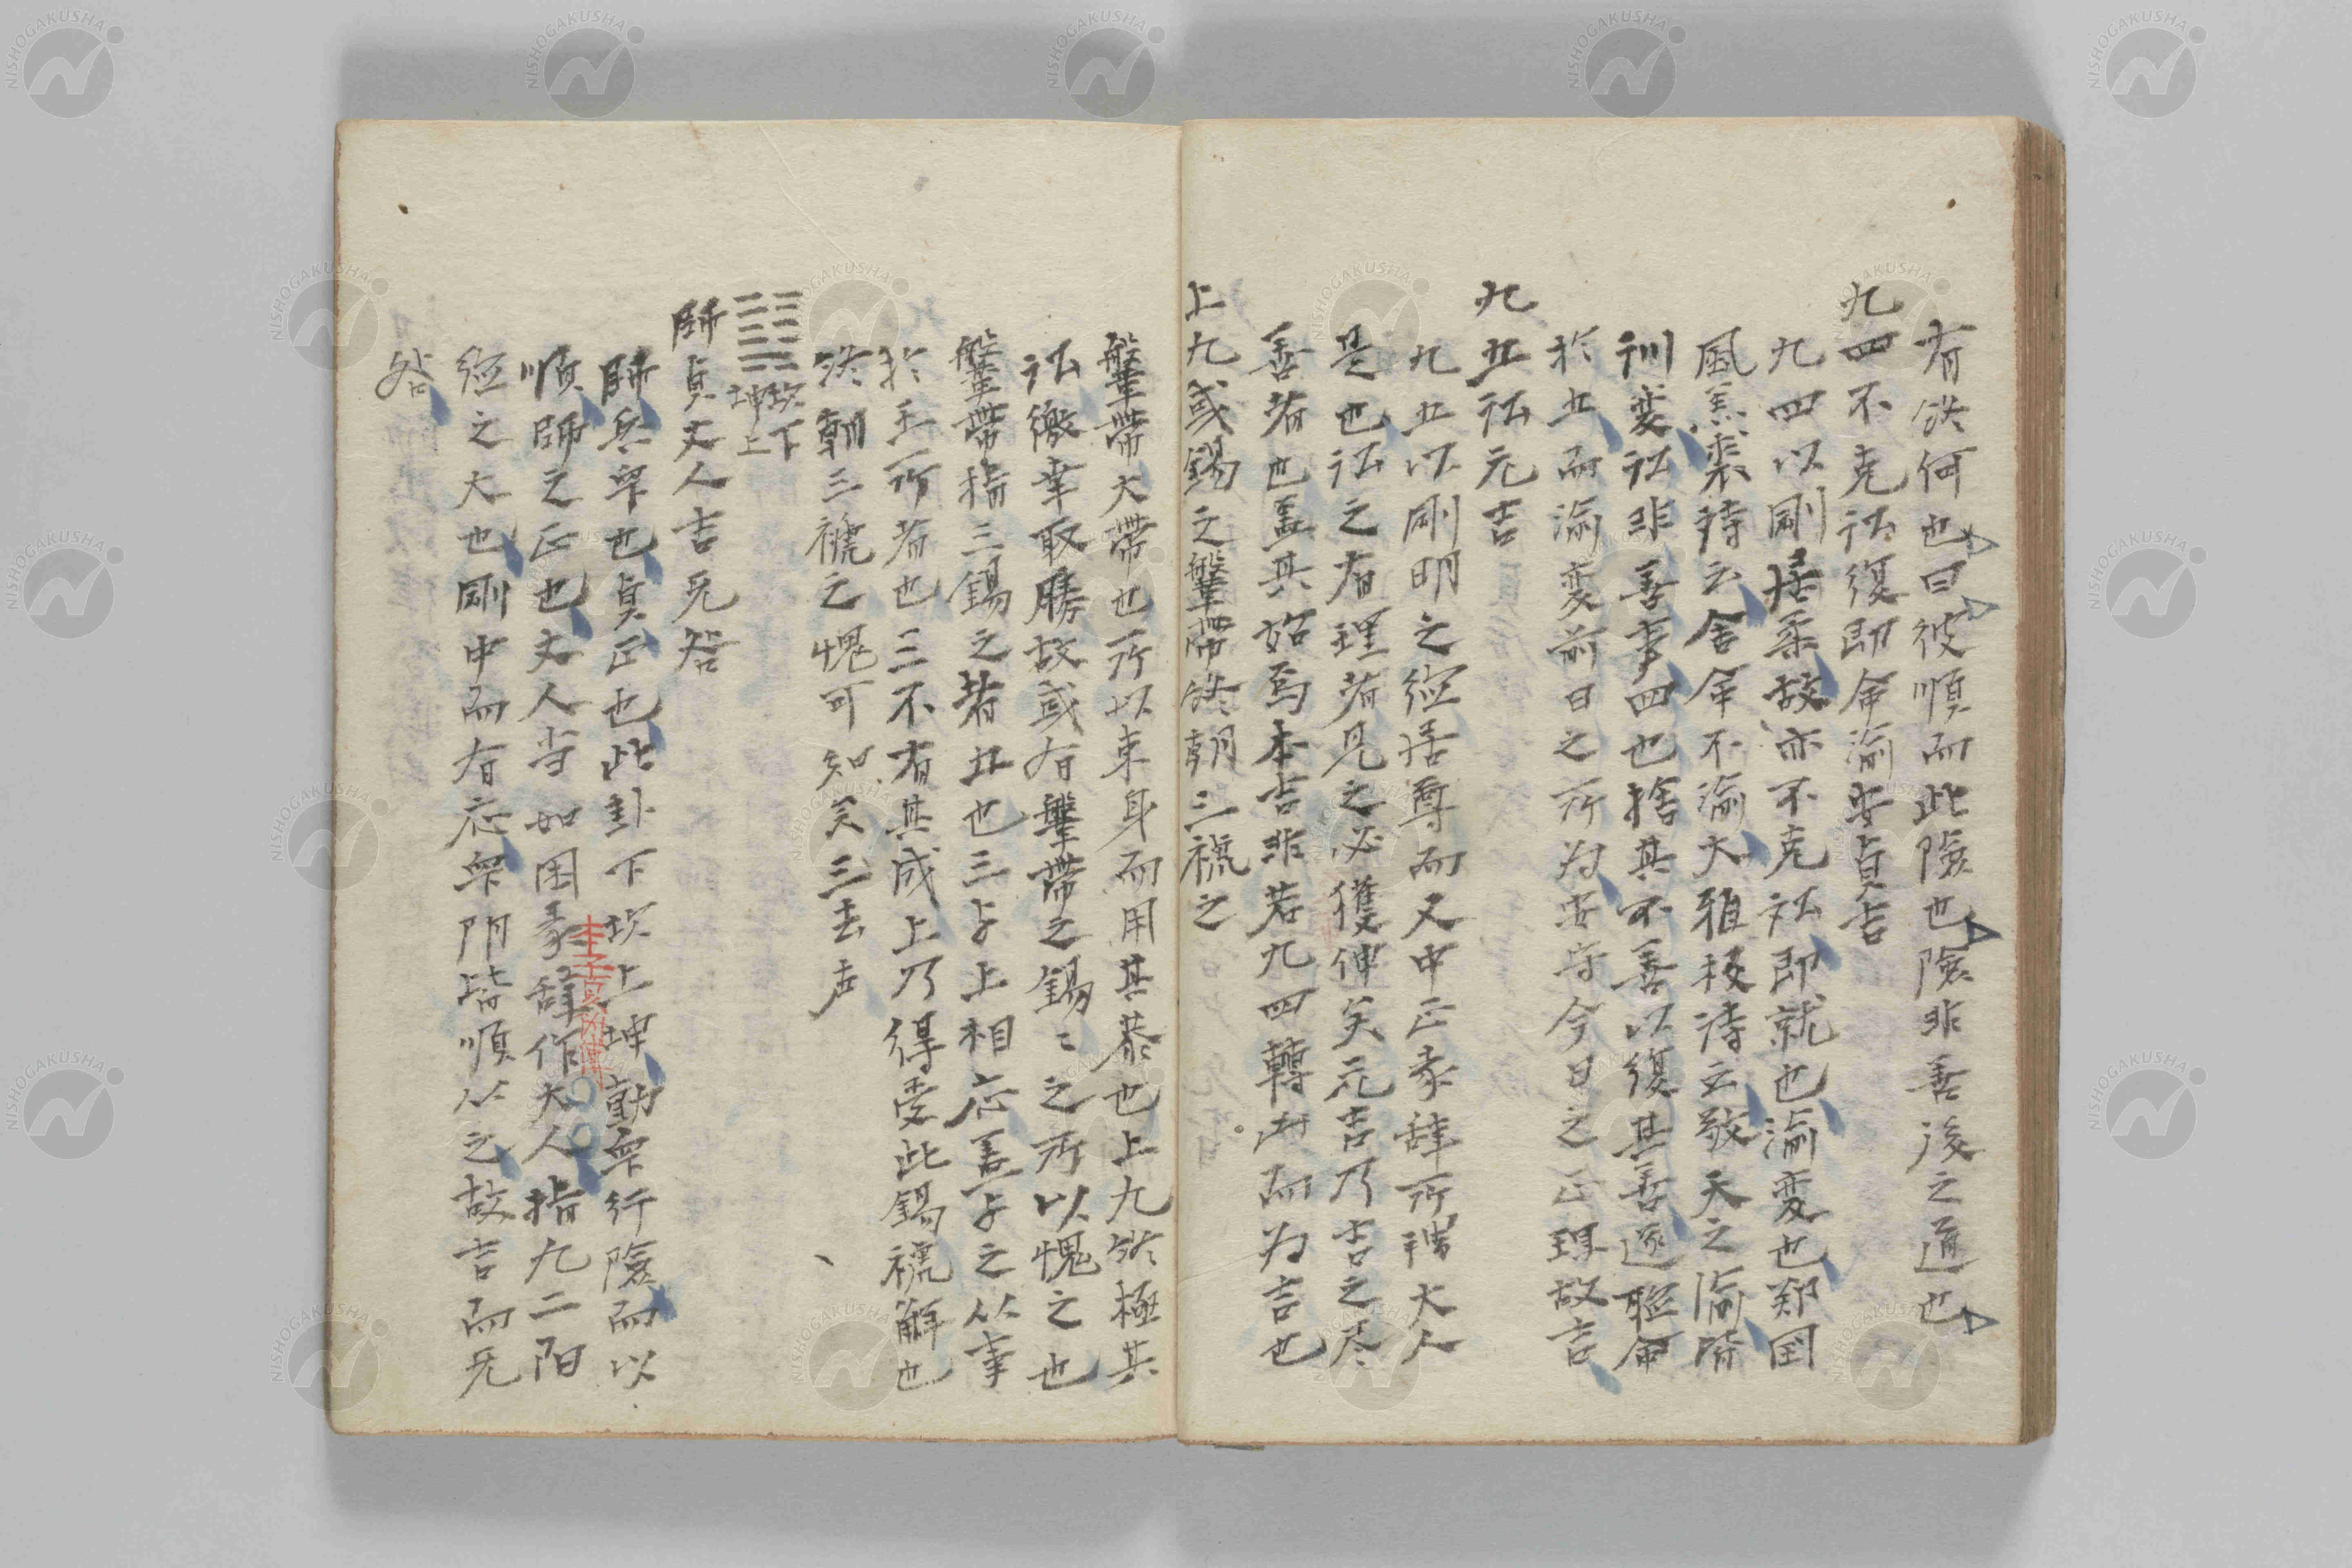 有終何也曰彼順而此險也險非善後之道也
九四不克訟復即命渝安貞吉
九四以剛居柔故亦不克訟即就也渝変也郑国
風羔裘詩云舍命不渝大雅板詩云敬天之渝皆
訓変訟非善事四也捨其不善以復其善遂聴命
於五而渝変前日之所为安守今日之正理故吉
九五訟元吉
九五以剛明之德居尊而又中正彖辞所謂大人
是也訟之有理者見之必獲伸矣元吉乃吉之尽
善者也盖其始焉本吉非若九四轉凶而为吉也
上九或錫之鞶帶終朝三褫之
鞶帶大帶也所以束身而用其恭也上九於極其
訟徼幸取勝故或有鞶帶之錫〻之所以愧之也
鞶帶指三錫之者五也三与上相応盖与之从事
於王所者也三不有其成上乃得受此錫褫解也
終朝三褫之愧可知矣三去声
坎下
坤上
師貞丈人吉旡咎
師兵眾也貞正也此卦下坎上坤動眾行險而以
順師之正也丈人当如困彖辞作大人指九二阳
德之大也剛中而有応眾阴皆順从之故吉而旡
咎
NISHOGAKUSHA